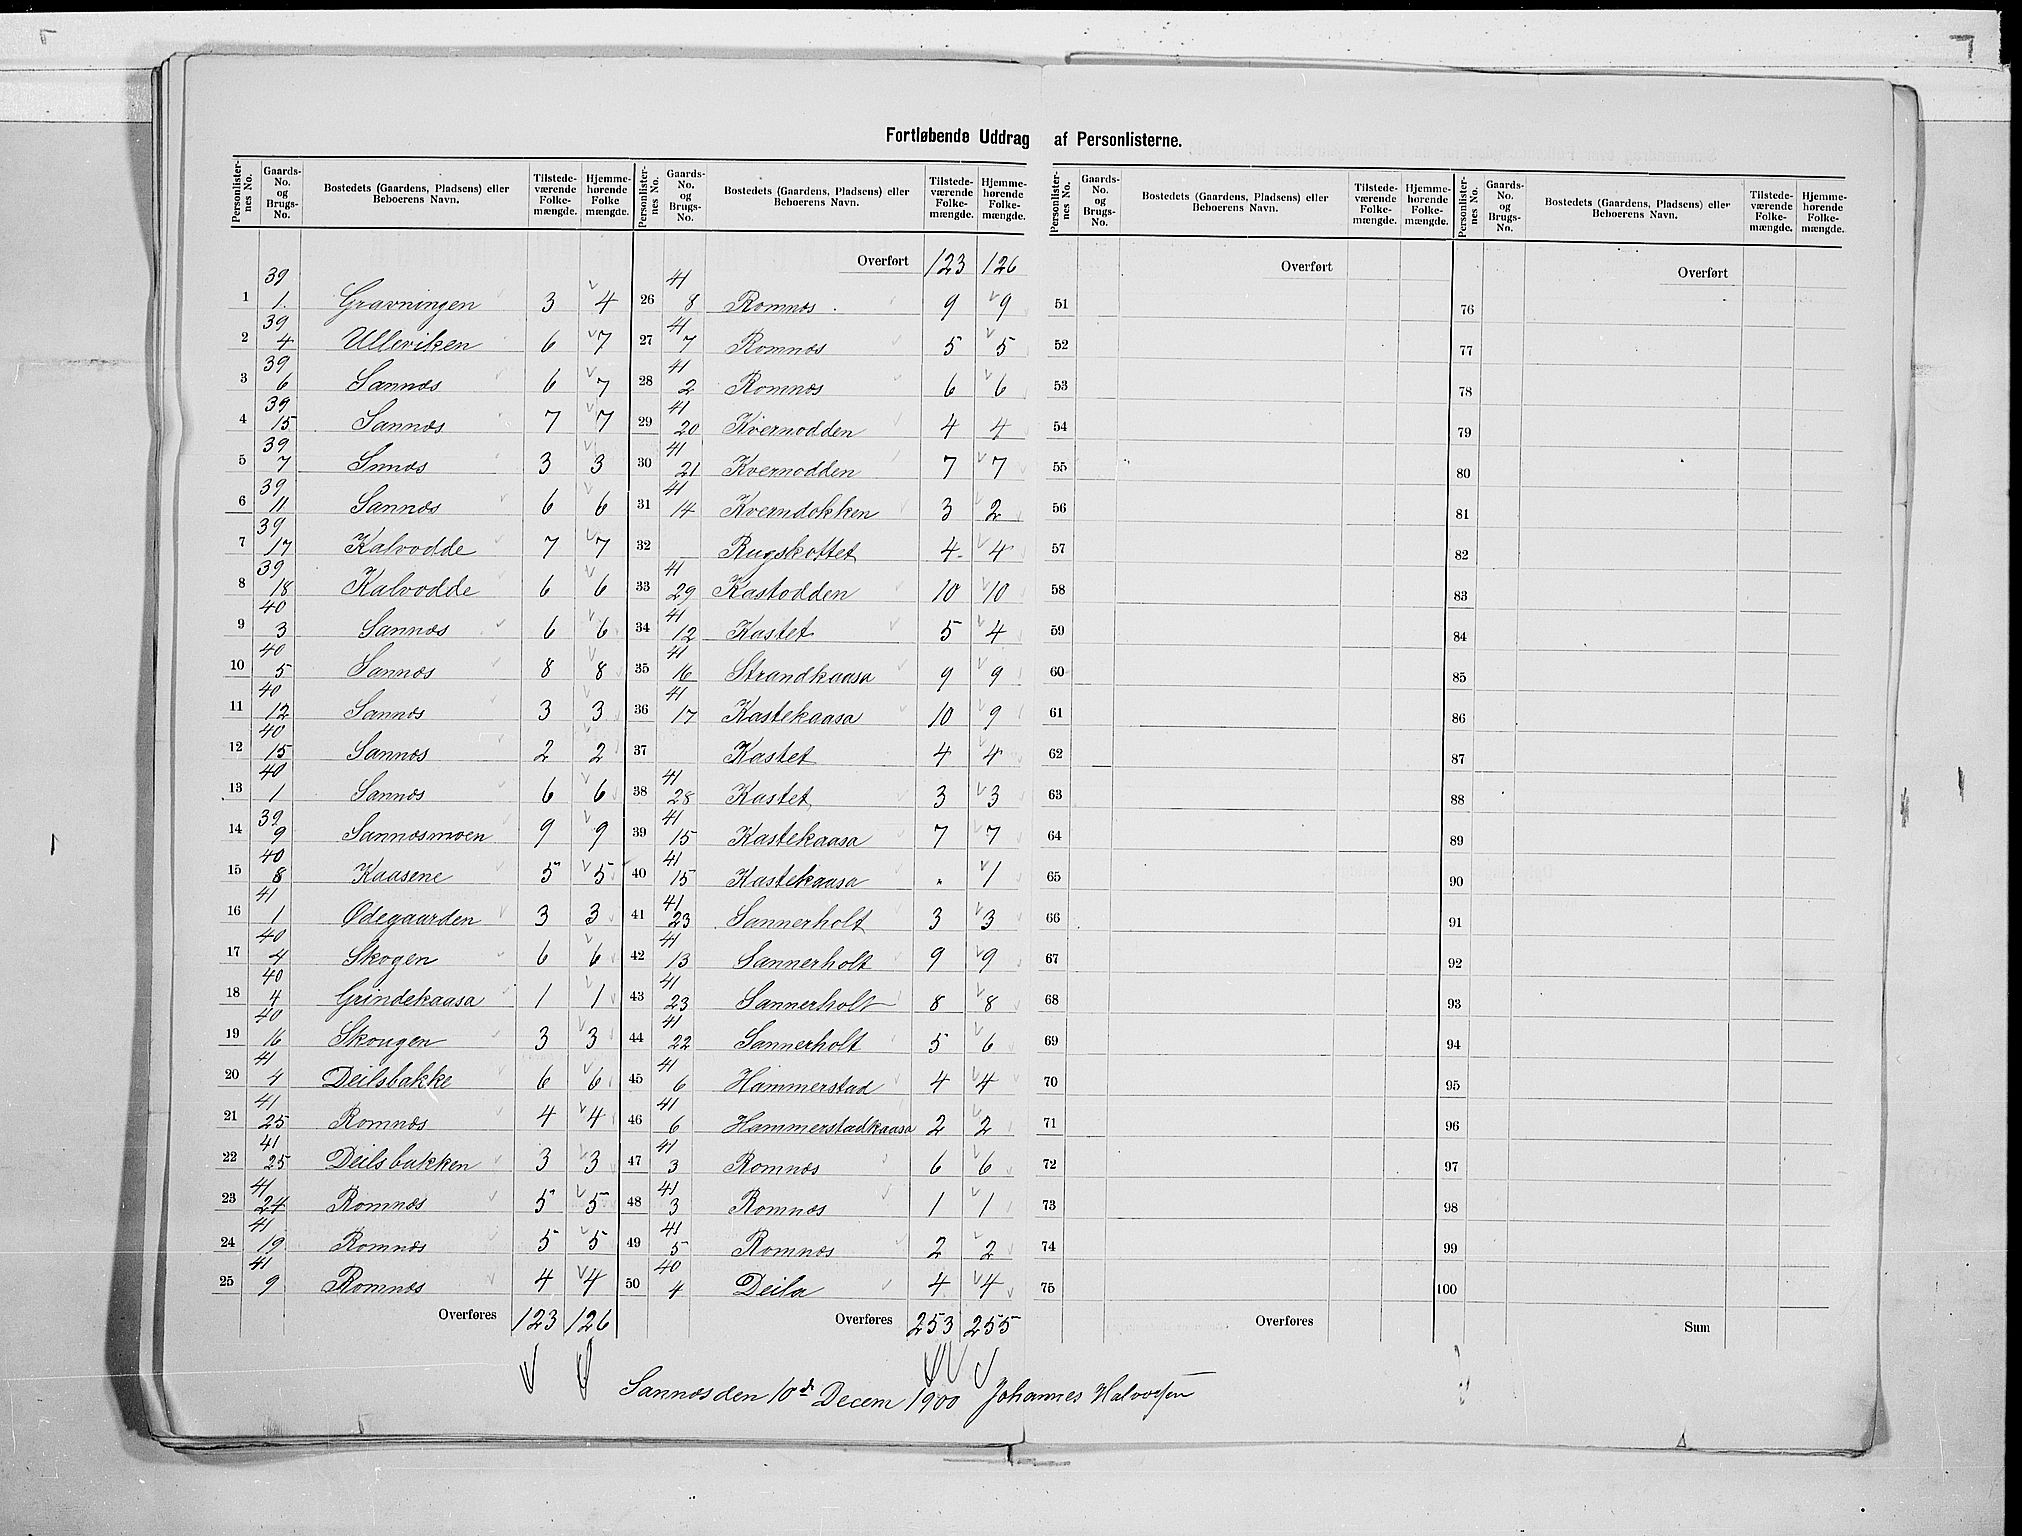 Fortløbende Uddrag af Personlisterne.
Personlister-nes No. Gaards-No. og Brugs-No. Bostedets (Gaardens, Pladsens) eller Beboerens Navn. Tilstede-værende Folke-mængde. Hjemme-hørende Folke mængde.
Personlister-nes No. Gaards-No. og Brugs-No. Bostedets (Gaardens, Pladsens) eller Beboerens Navn. Tilstede-værende Folke-mængde. Hjemme-hørende Folke-mængde.
Personlister-nes No. Gaards-No. og Brugs-No. Bostedets (Gaardens, Pladsens) eller Beboerens Navn. Tilstede-værende Folke-mængde. Hjemme-hørende Folke-mængde.
Personlister-nes No. Gaards-No. og Brugs-No. Bostedets (Gaardens, Pladsens) eller Beboerens Navn. Tilstede-værende Folke-mængde. Hjemme-hørende Folke-mængde.
1 39 1 Gravningen 3 4
2 39 4 Ulleviken 6 7
3 39 6 Sannæs 6 7
4 39 15 Sannæs 7 7
5 39 7 Snnæs 3 3
6 39 11 Sannæs 6 6
7 39 17 Kalvodde 7 7
8 39 18 Kalvodde 6 6
9 40 3 Sannæs 6 6
10 40 5 Sannæs 8 8
11 40 12 Sannæs 3 3
12 40 15 Sannæs 2 2
13 40 1 Sannæs 6 6
14 39 9 Sannæsmoen 9 9
15 40 8 Kaasene 5 5
16 41 1 Ødegaarden 3 3
17 40 4 Skogen 6 6
18 40 4 Grindekaasa 1 1
19 40 16 Skougen 3 3
20 41 4 Deilsbakke 6 6
21 41 25 Romnæs 4 4
22 41 25 Deilsbakken 3 3
23 41 24 Romnæs 5 5
24 41 19 Romnæs 5 5
25 41 9 Romnæs 4 4
Overføres 123 126
Overført 123 126
26 41 8 Romnæs 9 9
27 41 7 Romnæs 5 5
28 41 2 Romnæs 6 6
29 41 20 Kvernodden 4 4
30 41 21 Kvernodden 7 7
31 41 14 Kverndokken 3 2
32 Rugskottet 4 4
33 41 29 Kastodden 10 10
34 41 12 Kastet 5 4
35 41 16 Strandkaasa 9 9
36 41 17 Kastekaasa 10 9
37 Kastet 4 4
38 41 28 Kastet 3 3
39 41 15 Kastekaasa 7 7
40 41 15 Kastekaasa " 1
41 41 23 Sannerholt 3 3
42 41 13 Sannerholt 9 9
43 41 23 Sannerholt 8 8
44 41 22 Sannerholt 5 6
45 41 6 Hammerstad 4 4
46 41 6 Hammerstadkaasa 2 2
47 41 3 Romnæs 6 6
48 41 3 Romnæs 1 1
49 41 5 Romnæs 2 2
50 40 4 Deila 4 4
Overføres 253 255
Overført
51
52
53
54
55
56
57
58
59
60
61
62
63
64
65
66
67
68
69
70
71
72
73
74
75
Overføres
Overført
76
77
78
79
80
81
82
83
84
85
86
87
88
89
90
91
92
93
94
95
96
97
98
99
100
Sum
Sannæs den 10de Decem 1900 Johannes Halvorsen